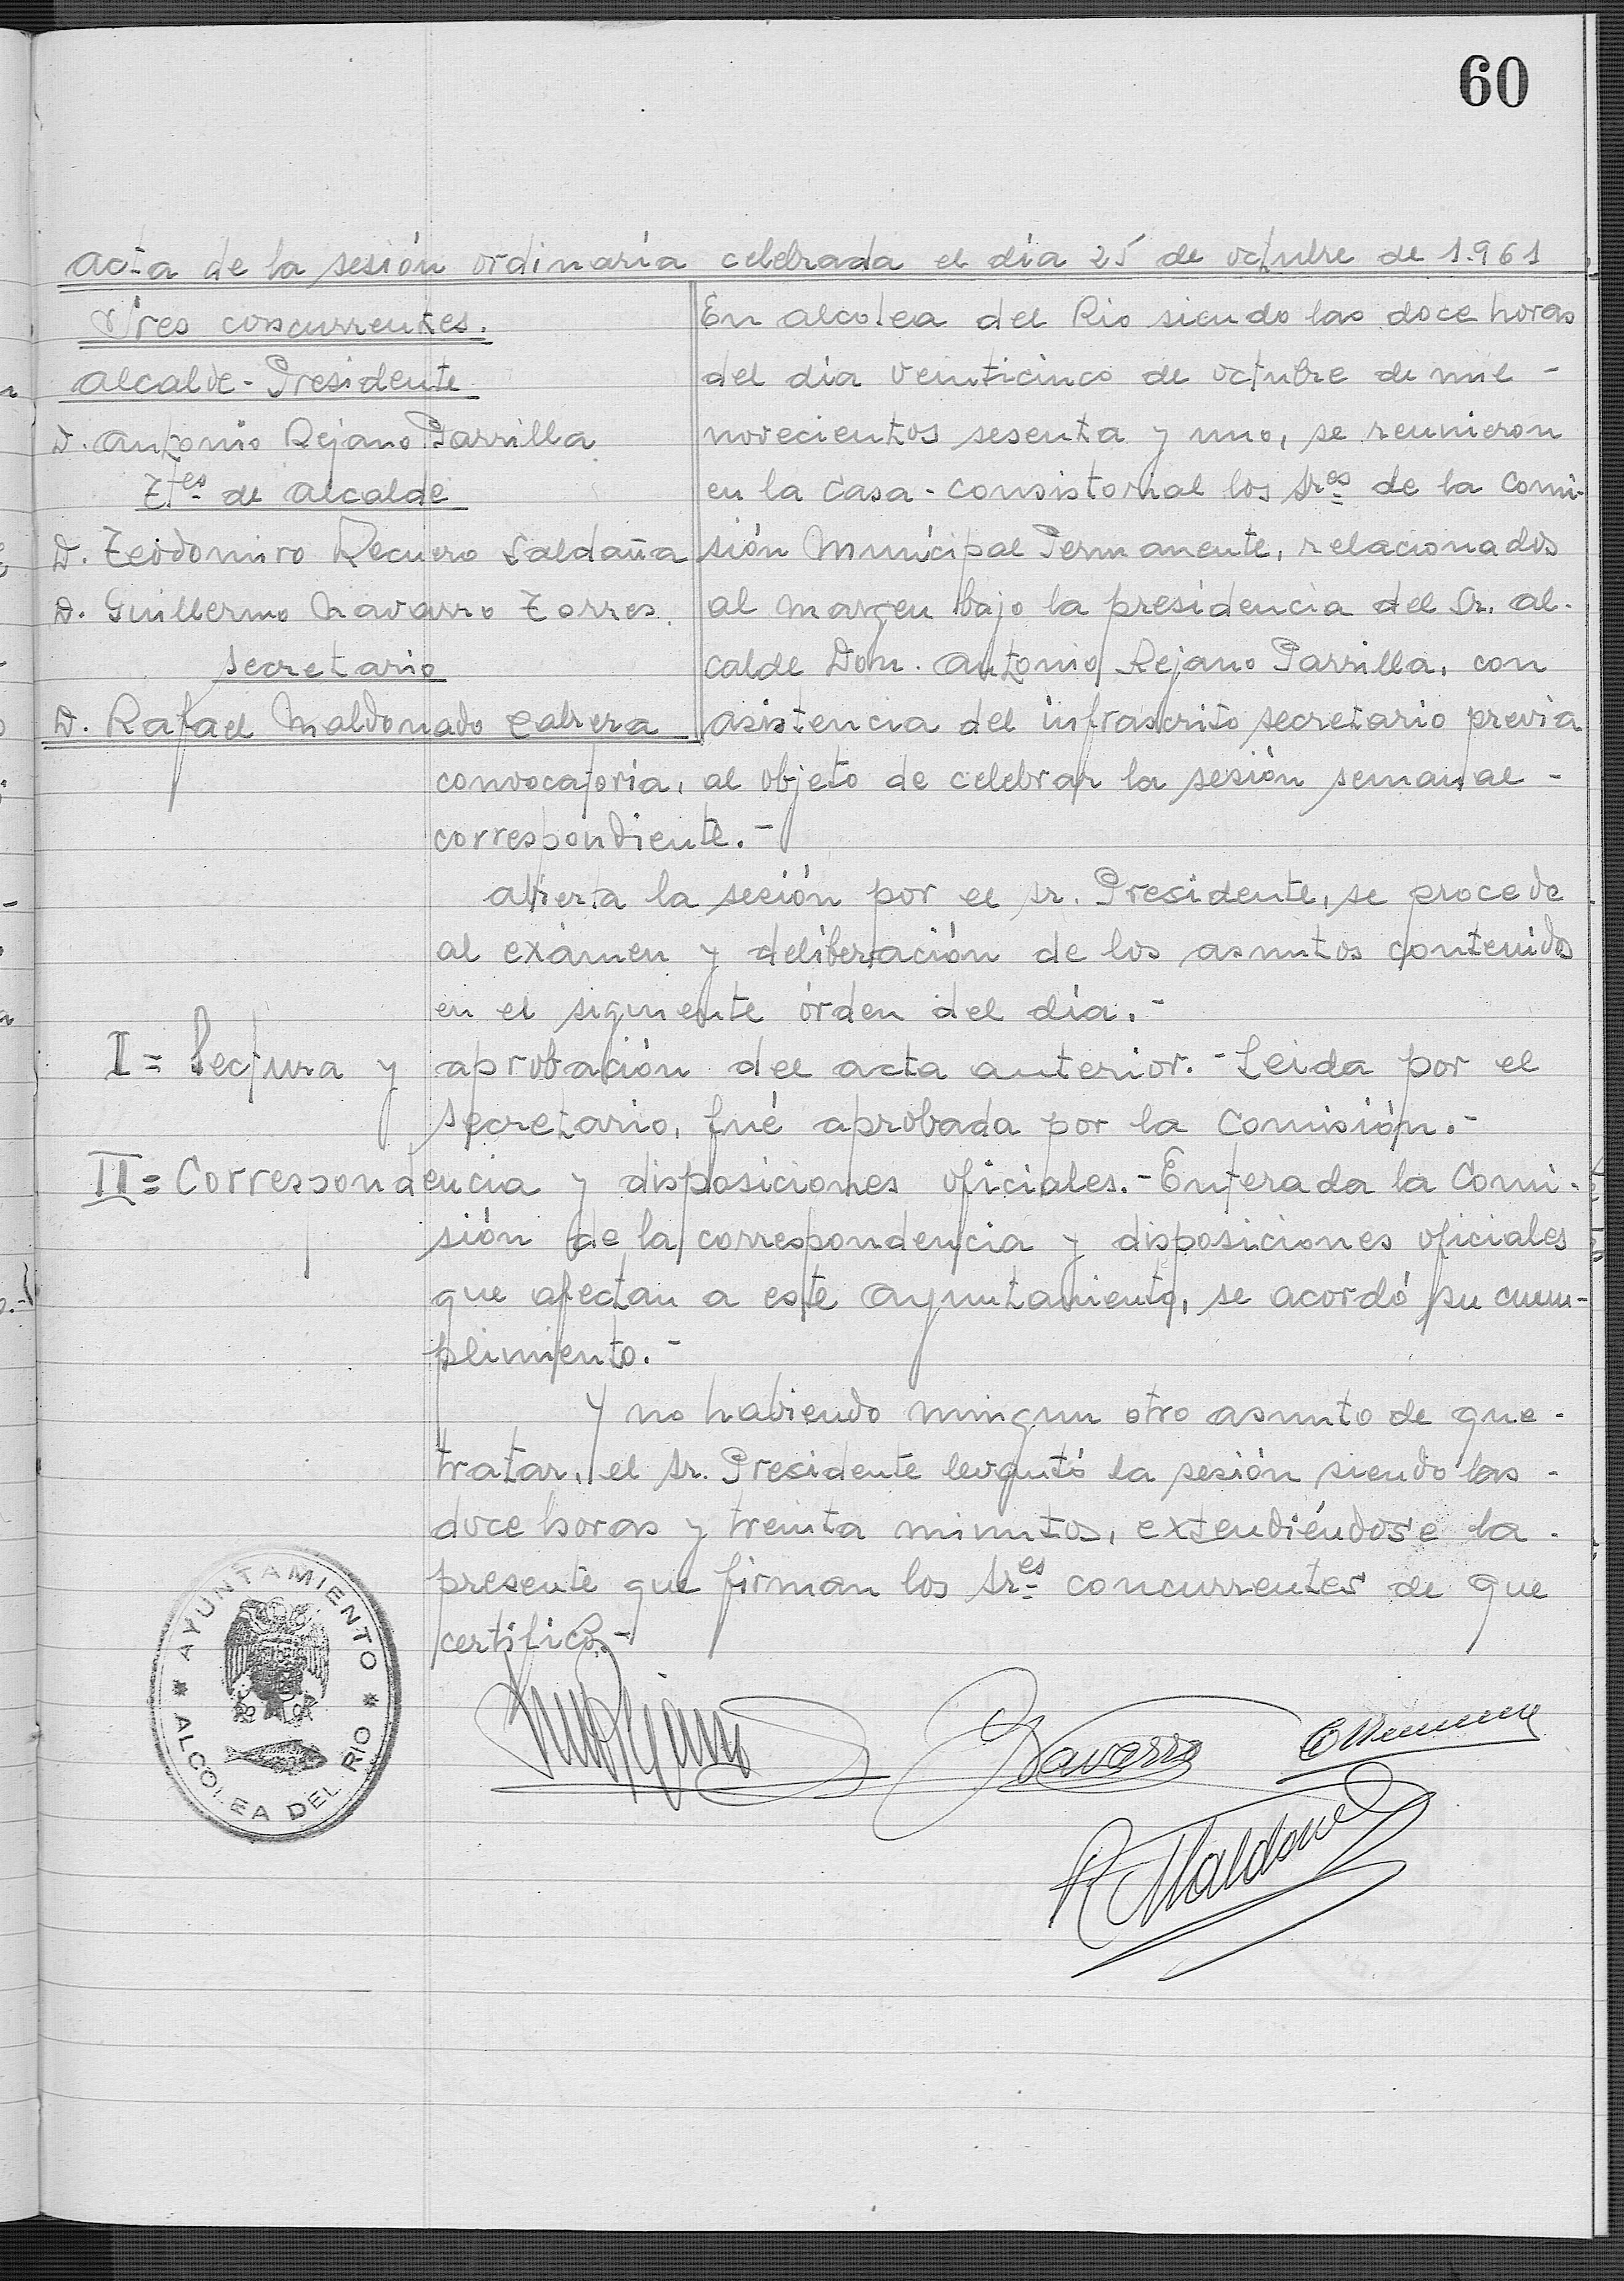 60
acta de la sesión ordinaria celebrada el día 25 de octubre de 1.961
Sres concurrentes.
alcalde-Presidente
D. antonio Rejano Parrilla
Ttes de alcalde
D. Teodomiro Recuero Saldaña
D. Guillermo Navarro Torres.
secretario
D. Rafael Maldonado Cabrera
En alcolea del Rio siendo las doce horas
del día veinticinco de octubre de mil -
novecientos sesenta y uno, se reunieron
en la casa-consistorial los sres de la Comi-
sión Municipal Permanente, relacionados
al margen bajo la presidencia del Sr. al-
calde Don. antonio Rejano Parrilla, con
asistencia del infrascrito secretario previa
convocatoria, al objeto de celebrar la sesión semanal -
correspondiente.-
abierta la sesión por el sr. Presidente, se procede
al exámen y deliberación de los asuntos contenidos
en el siguiente órden del día.-
I = Lectura y aprobación del acta anterior.- Leida por el
secretario, fué aprobada por la Comisión.-
II = Correspondencia y disposiciones oficiales.- Enterada la Comi-
sión de la correspondencia y disposiciones oficiales
que afectan a este ayuntamiento, se acordó su cum-
plimiento.-
Y no habiendo ningun otro asunto de que -
tratar, el sr. Presidente levantó la sesión siendo las -
doce horas y treinta minutos, extendiéndose la -
presente que firman los sres concurrentes de que
certifico.-
AYUNTAMIENTO
ALCOLEA DEL RIO
Navarro
R Maldonado